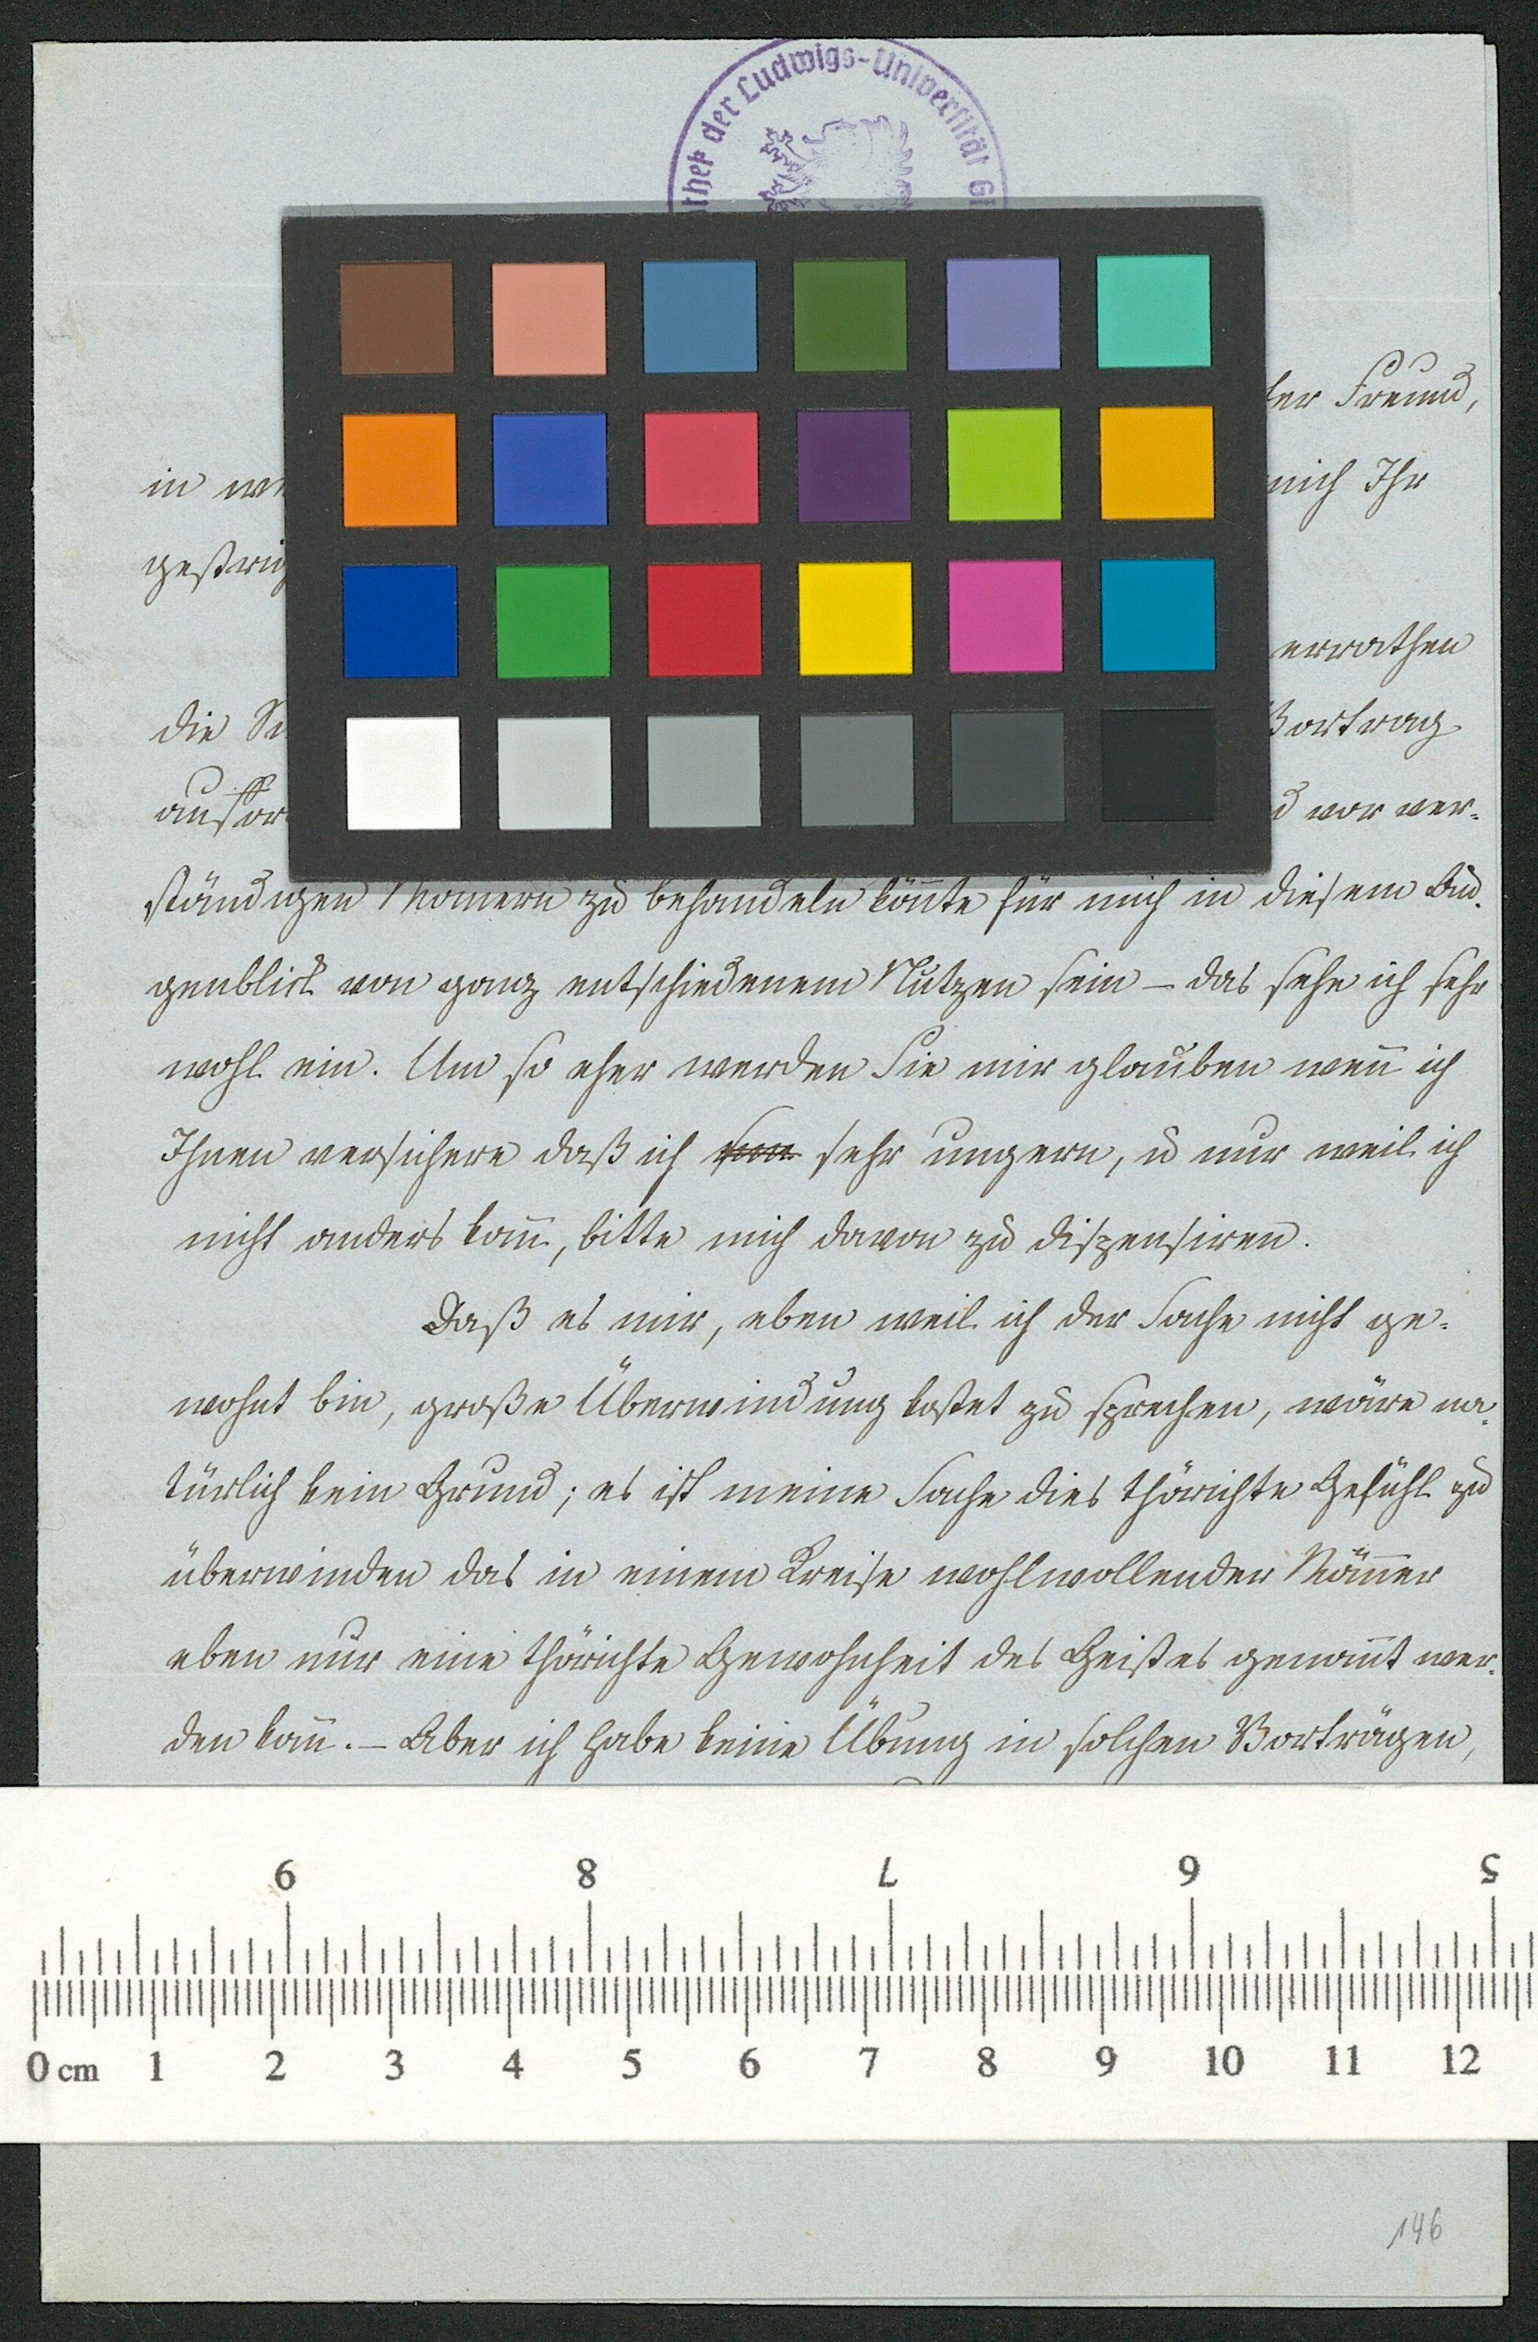 thek der Ludwigs-Universität Gi
ter Freund,
in
mich Ihr
errathen
die
Vortrag
vor ver-
ständigen Mänern zu behandeln kön̄te für mich in diesem Au-
genblick von ganz entschiedenem Nutzen sein – das sehe ich sehr
wohl ein. Um so eher werden Sie mir glauben wen̄ ich
Ihnen versichere daß ich sehr ungern, u nur weil ich
nicht anders kan̄, bitte mich davon zu dispensiren.
Daß es mir, eben weil ich der Sache nicht ge-
wohnt bin, große Überwindung kostet zu sprechen, wäre na-
türlich kein Grund; es ist meine Sache dies thörichte Gefühl zu
überwinden das in einem Kreise wohlwollender Män̄er
eben nur eine thörichte Gewohnheit des Geistes genan̄t wer-
den kan̄. – Aber ich habe keine Übung in solchen Vorträgen,
9 8 7 6 5
0 cm 1 2 3 4 5 6 7 8 9 10 11 12
146